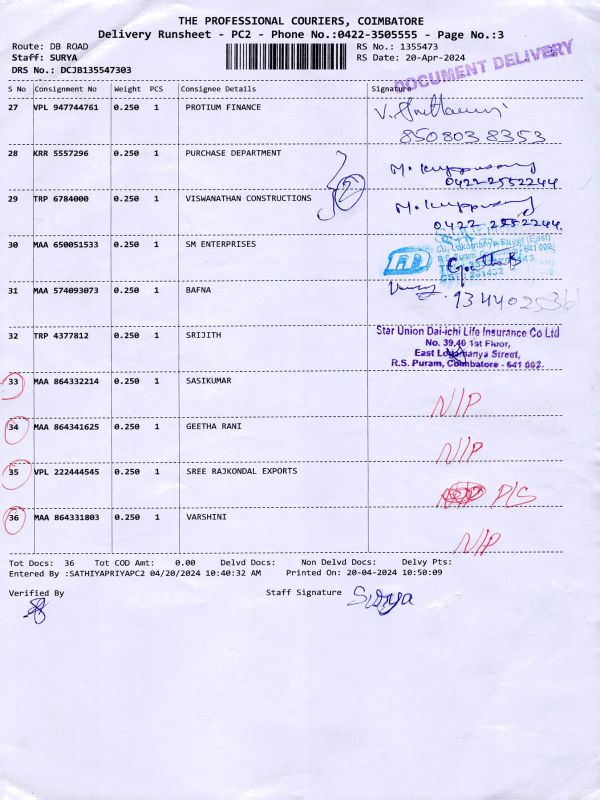 THE PROFESSIONAL COURIERS, COIMBATORE
Delivery Runsheet - PC2 - Phone No.:0422-3505555 - Page No.:3
Route: DB ROAD RS No.: 1355473
Staff: SURYA RS Date: 20-Apr-2024
DRS No.: DCJB135547303
DOCUMENT DELIVERY
S No Consignment No Weight PCS Consignee Details Signature
27 VPL 947744761 0.250 1 PROTIUM FINANCE
8508038353
28 KRR 5557296 0.250 1 PURCHASE DEPARTMENT
0422-2552244
2
29 TRP 6784000 0.250 1 VISWANATHAN CONSTRUCTIONS
0422 2552244.
30 MAA 650051533 0.250 1 SM ENTERPRISES
Lokamanya Street (East)
R.S. Puram, 641 002.
31 MAA 574093073 0.250 1 BAFNA
32 TRP 4377812 0.250 1 SRIJITH
Star Union Dai-ichi Life Insurance Co Ltd
No. 39,40 1st Floor,
East Lokamanya Street,
R.S. Puram, Coimbatore - 641 002.
33 MAA 864332214 0.250 1 SASIKUMAR
N/P
34 MAA 864341625 0.250 1 GEETHA RANI
N/P
35 VPL 222444545 0.250 1 SREE RAJKONDAL EXPORTS
P/S
36 MAA 864331803 0.250 1 VARSHINI
N/P
Tot Docs: 36 Tot COD Amt: 0.00 Delvd Docs: Non Delvd Docs: Delvy Pts:
Entered By :SATHIYAPRIYAPC2 04/20/2024 10:40:32 AM Printed On: 20-04-2024 10:50:09
Verified By Staff Signature Surya